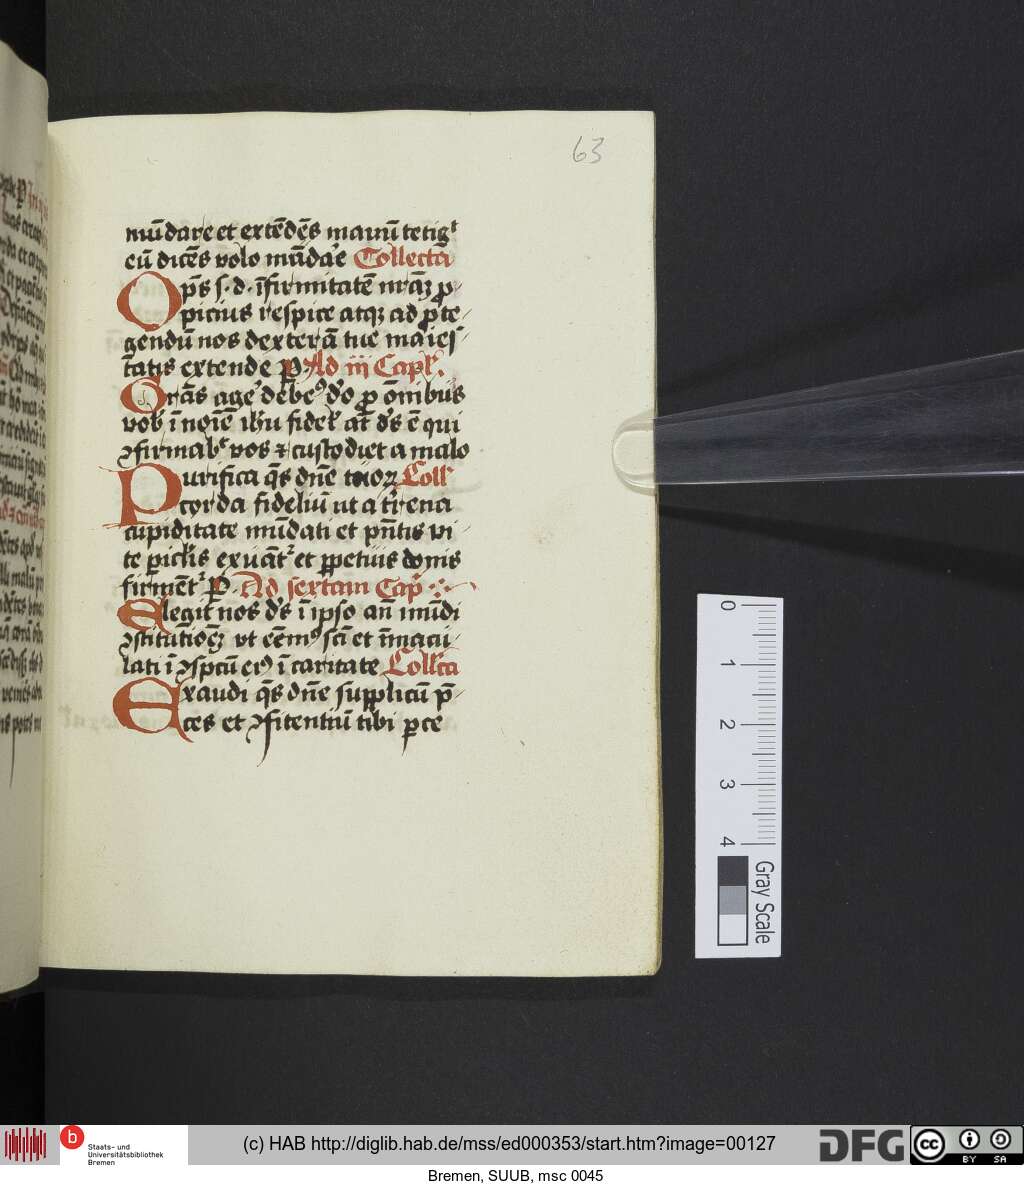 63
mūdare et extēdēs manū tetigᵗ
cū dicēs volo mūda'e Collecta
Op̄s s. d. īfirmitatē nr̄aꝫ ꝓ
picius respice atqꝫ ad ꝓte
gendū nos dexterā tue maies
tatis extende P Ad iij Capl'.
Grās age' debe⁹ d'o ꝓ om̄ibus
vob' ī noīe ihu fidel' at d's ē qui
ꝯfirmab' vos ⁊ custodiet a malo
Purifica qs dn̄e tuoꝝ Coll'
corda fideliū ut a t'rena
cupiditate mūdati et pn̄tis vi
te ꝑiclis exuāt' et ꝑpetuis donis
firmēt' P. Ad sextam Cap
Elegit nos d's ī ipso an̄ mūdi
ꝯstitutioēꝫ vt eēm⁹ sc̄i et īmacu
lati ī ꝯspcū ei⁹ ī caritate Coll'cta
Exaudi qs dn̄e supplicū p̄
ces et ꝯfitentiū tibi ꝑce
0
1
2
3
4
Gray Scale
b
Staats- und
Universitätsbibliothek
Bremen
(c) HAB http://diglib.hab.de/mss/ed000353/start.htm?image=00127
DFG
cc
BY SA
Bremen, SUUB, msc 0045